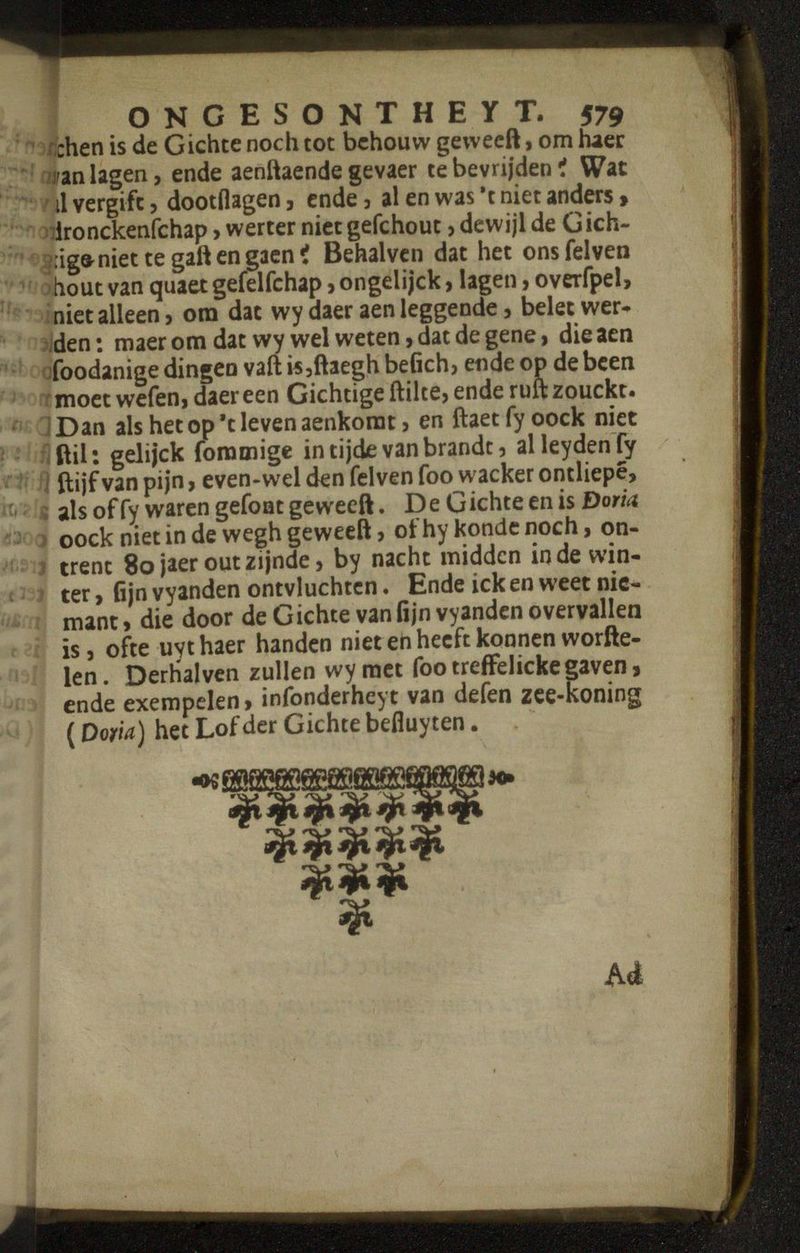 ONGESONTHEYT. 579
schen is de Gichte noch tot behouw geweeſt, om haer
van lagen, ende aenſtaende gevaer te bevrijden? Wat
al vergift, dootſlagen, ende, al en was 't niet anders,
dronckenſchap, werter niet geſchout, dewijl de Gich-
tige niet te gaſt en gaen? Behalven dat het ons ſelven
hout van quaet geſelſchap, ongelijck, lagen, overſpel,
niet alleen, om dat wy daer aen leggende, belet wer-
den: maer om dat wy wel weten, dat de gene, die aen
ſoodanige dingen vaſt is, ſtaegh beſich, ende op de been
moet weſen, daer een Gichtige ſtilte, ende ruſt zouckt.
Dan als het op 't leven aenkomt, en ſtaet ſy oock niet
ſtil: gelijck ſommige in tijde van brandt, al leyden ſy
ſtijf van pijn, even-wel den ſelven ſoo wacker ontliepē,
als of ſy waren geſont geweeſt. De Gichte en is Doria
oock niet in de wegh geweeſt, of hy konde noch, on-
trent 80 jaer out zijnde, by nacht midden in de win-
ter, ſijn vyanden ontvluchten. Ende ick en weet nie-
mant, die door de Gichte van ſijn vyanden overvallen
is, ofte uyt haer handen niet en heeft konnen worſte-
len. Derhalven zullen wy met ſoo treffelicke gaven,
ende exempelen, inſonderheyt van deſen zee-koning
(Doria) het Lof der Gichte beſluyten.
Ad